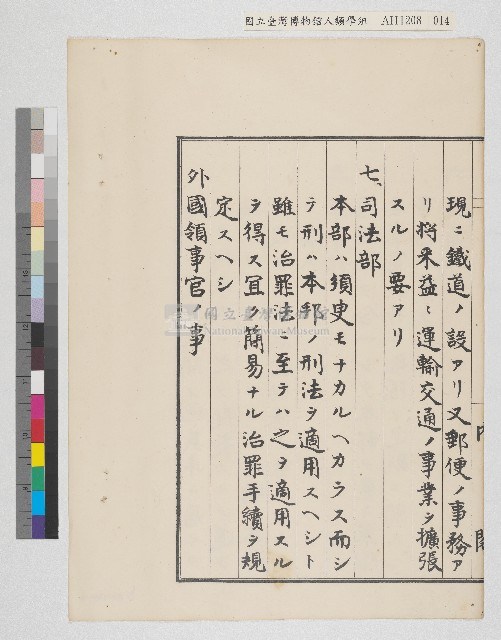 國立臺灣博物館人類學組 AH1208 014
現ニ鐵道ノ設アリ又郵便ノ事務ア
リ将来益〻運輸交通ノ事業ヲ擴張
スルノ要アリ
七、司法部
本部ハ須臾モナカルヘカラス而シ
テ刑ハ本邦ノ刑法ヲ適用スヘシト
雖モ治罪法ニ至テハ之ヲ適用スル
ヲ得ス宜ク簡易ナル治罪手續ヲ規
定スヘシ
外國領事官ノ事
國立臺灣博物館
National Taiwan Museum